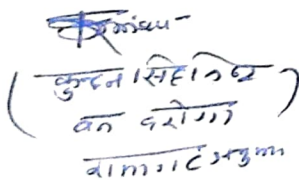 (कुन्दन सिंह बिष्ट)
वन दरोगा
रामगढ़ अनुभाग